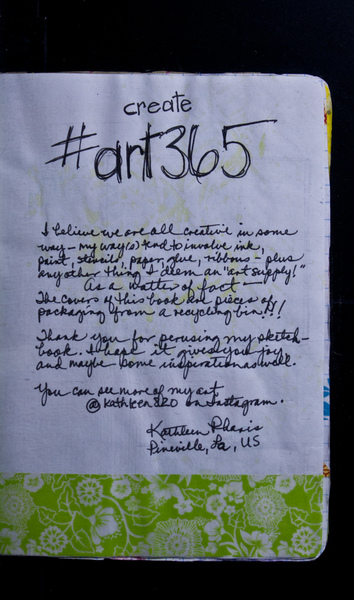 create
#art365
I believe we are all creative in some
way - my way(s) tend to involve ink,
paint, stencils, paper, glue, ribbons - plus
any other thing I deem an "art supply!"
As a matter of fact -
The covers of this book are pieces of
packaging from a recycling bin!!!
Thank you for perusing my sketch-
book. I hope it gives you joy
and maybe some inspiration as well.
You can see more of my art
@kathleen820 on instagram.
Kathleen Pharis
Pineville, La, US